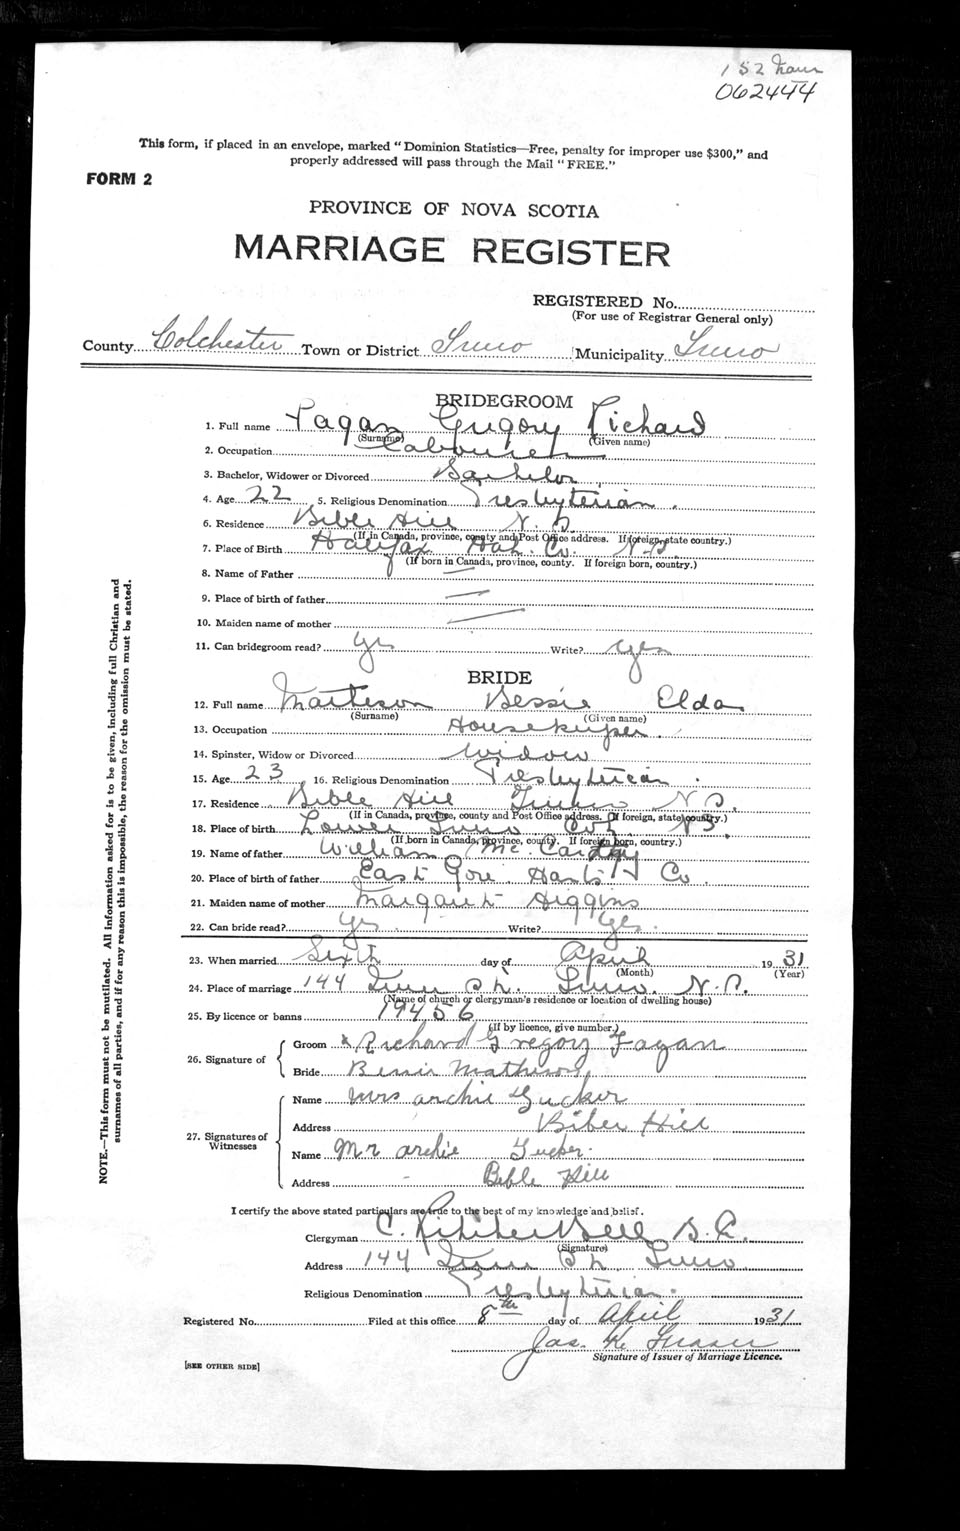 152
062444
This form, if placed in an envelope, marked "Dominion Statistics—Free, penalty for improper use $300," and
properly addressed will pass through the Mail "FREE."
FORM 2
PROVINCE OF NOVA SCOTIA
MARRIAGE REGISTER
REGISTERED No.
(For use of Registrar General only)
County Colchester Town or District Truro Municipality Truro
BRIDEGROOM
1. Full name Fagan Gregory Richard
(Surname) (Given name)
2. Occupation Labourer
3. Bachelor, Widower or Divorced Bachelor
4. Age 22 5. Religious Denomination Presbyterian.
6. Residence Bible Hill N.S.
(If in Canada, province, county and Post Office address. If foreign, state country.)
7. Place of Birth Halifax Hal. Co. N.S.
(If born in Canada, province, county. If foreign born, country.)
8. Name of Father —
9. Place of birth of father —
10. Maiden name of mother —
11. Can bridegroom read? Yes Write? Yes
BRIDE
12. Full name Matheson Bessie Elda
(Surname) (Given name)
13. Occupation Housekeeper.
14. Spinster, Widow or Divorced Widow
15. Age 23 16. Religious Denomination Presbyterian.
17. Residence Bible Hill Truro N.S.
(If in Canada, province, county and Post Office address. If foreign, state country.)
18. Place of birth Lower Truro Col. N.S.
(If born in Canada, province, county. If foreign born, country.)
19. Name of father William McCarthy
20. Place of birth of father East Gore Hants Co.
21. Maiden name of mother Margaret Higgins
22. Can bride read? Yes Write? Yes.
23. When married Sixth day of April 1931
(Month) (Year)
24. Place of marriage 144 St. Truro. N.S.
(Name of church or clergyman's residence or location of dwelling house)
25. By licence or banns 19456
(If by licence, give number.)
26. Signature of
Groom x Richard Gregory Fagan
Bride Bessie Matheson
27. Signatures of Witnesses
Name Mrs Archie Tucker
Address Biber Hill
Name Mr Archie Tucker.
Address Bible Hill
I certify the above stated particulars are true to the best of my knowledge and belief.
Clergyman C. B.A.
(Signature)
Address 144 St. Truro
Religious Denomination Presbyterian.
Registered No. Filed at this office 8th day of April 1931
Jas. K. Fraser
Signature of Issuer of Marriage Licence.
[SEE OTHER SIDE]
NOTE.—This form must not be mutilated. All information asked for is to be given, including full Christian and
surnames of all parties, and if for any reason this is impossible, the reason for the omission must be stated.